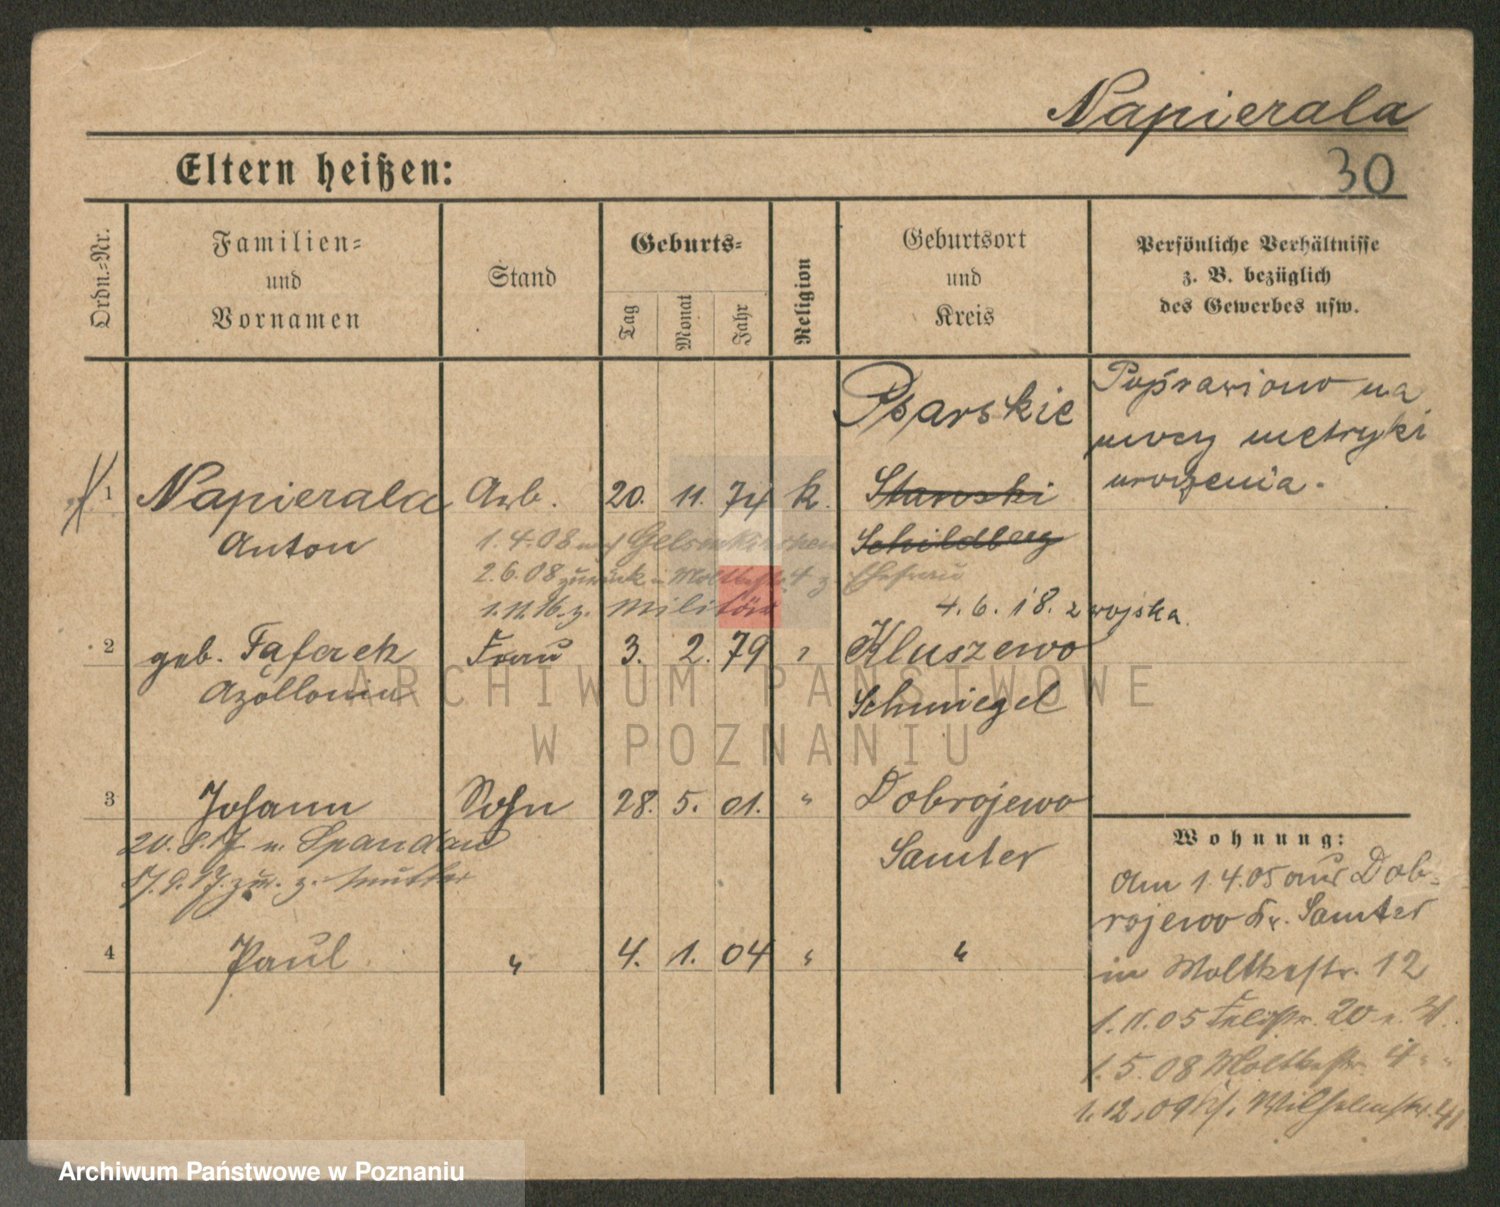 Napierala
30
Eltern heißen:
Ordn.=Nr.
Familien=
und
Vornamen
Stand
Geburts=
Tag
Monat
Jahr
Religion
Geburtsort
und
Kreis
Persönliche Verhältnisse
z. B. bezüglich
des Gewerbes usw.
Psarskie
Poprawiono na
mocy metryki
urodzenia.
1 Napierala Arb. 20. 11. 74 k.
Anton
Schildberg
1.4.08 Gelsenkirchen
2.6.08 zurück Moltkestr. 4 z. Ehefrau
1.11.16. z. Militär
4.6.18. z wojska.
2 geb. Frau 3. 2. 79 " Kluszewo
Apollonia Schmiegel
3 Johann Sohn 28. 5. 01. " Dobrojewo
20. 8. 17 n. Spandau Samter
9. 17. zur. z. Mutter
4 Paul " 4. 1. 04 " "
Wohnung:
Am 1.4.05 aus Dob-
rojewo Kr. Samter
in Moltkestr. 12
1.11.05 20
1.5.08 Moltkestr. 4 " "
1.12.09 Wilhelmstr. 41
ARCHIWUM PAŃSTWOWE
W POZNANIU
Archiwum Państwowe w Poznaniu